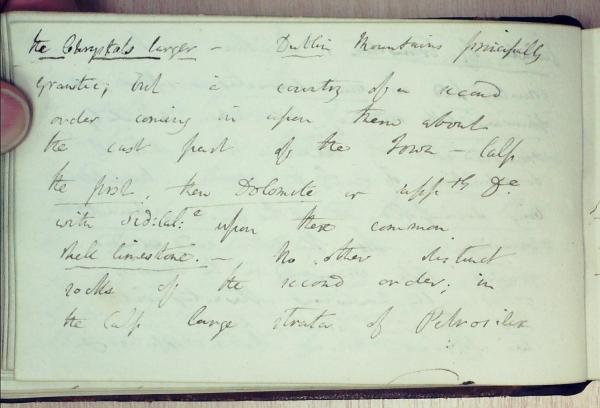 the Chrystals larger – Dublin Mountains principally
granitic; but a country of a second
order coming in upon them about
the east part of the Town – Calp
the first, then Dolomite or &c
with upon these common
shell limestone. – No other distinct
rocks of the second order; in
the Calp large strata of Petrosilex